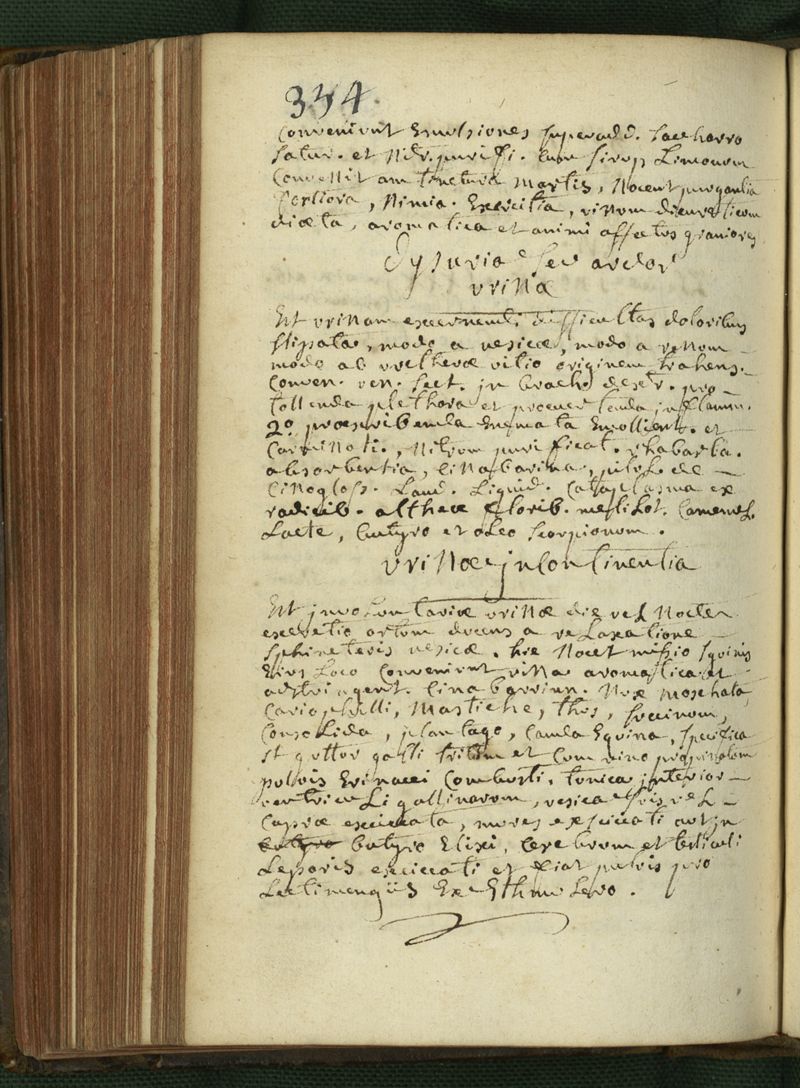 334
Conveniunt Emulsiones superadd. Sacchorro
Satur. et Nitr. purifi. Cum Sirop Limonum
Convenit am tinctura Martis, Nocent purgantia
fortiora, Nimia. Exercitia, vinum diureticum
diæta, aromatica et animi affectos graviores
Dysuria seu ardor
vrinæ
Est vrinam excernendi difficultas doloribus
stipata, modo a vesicæ, modo a renum
modo ab vrethræ vitio originem trahens.
Conven. ven. sect. in brach. dextr. pro
tollenda plethora et præcavenda inflamm.
2º præscribenda Enemata Emollient. et
Carminati., Nitrum purificat. rhabarba.
absorbentia, Cinabarina, pilul. de
Cinogloss. Laud. Liquid. Cataplasma ex
radicib. altheæ floribus. melilot. Camemel.
Lacte, butyro et oleo scorpionum.
vrinæ jncontinentia
Est jnvoluntariæ vrinæ die vel Nocte
excretio ortum ducens a relaxatione
Sphincteris vesicæ. hic Nocet missio sguinis
Eius Loco Conveniunt vina aromatica et
adstringent. Cinabarrinn. Nux Moschata
Cariophilli, Mastiche, thus, succinum,
Consolida, plantago, Cauda Equina, specifica
st guttur galli tritum et Cum vino propinatum
pulvis Erinacei Combusti, tunica interior
ventriculi gallinarum, vesica
Capræ exciccata, mures exsiccati aut jn
butyro Elixi, Cerebrum et testiculi
Leporis exciccati et fiat pulvis pro